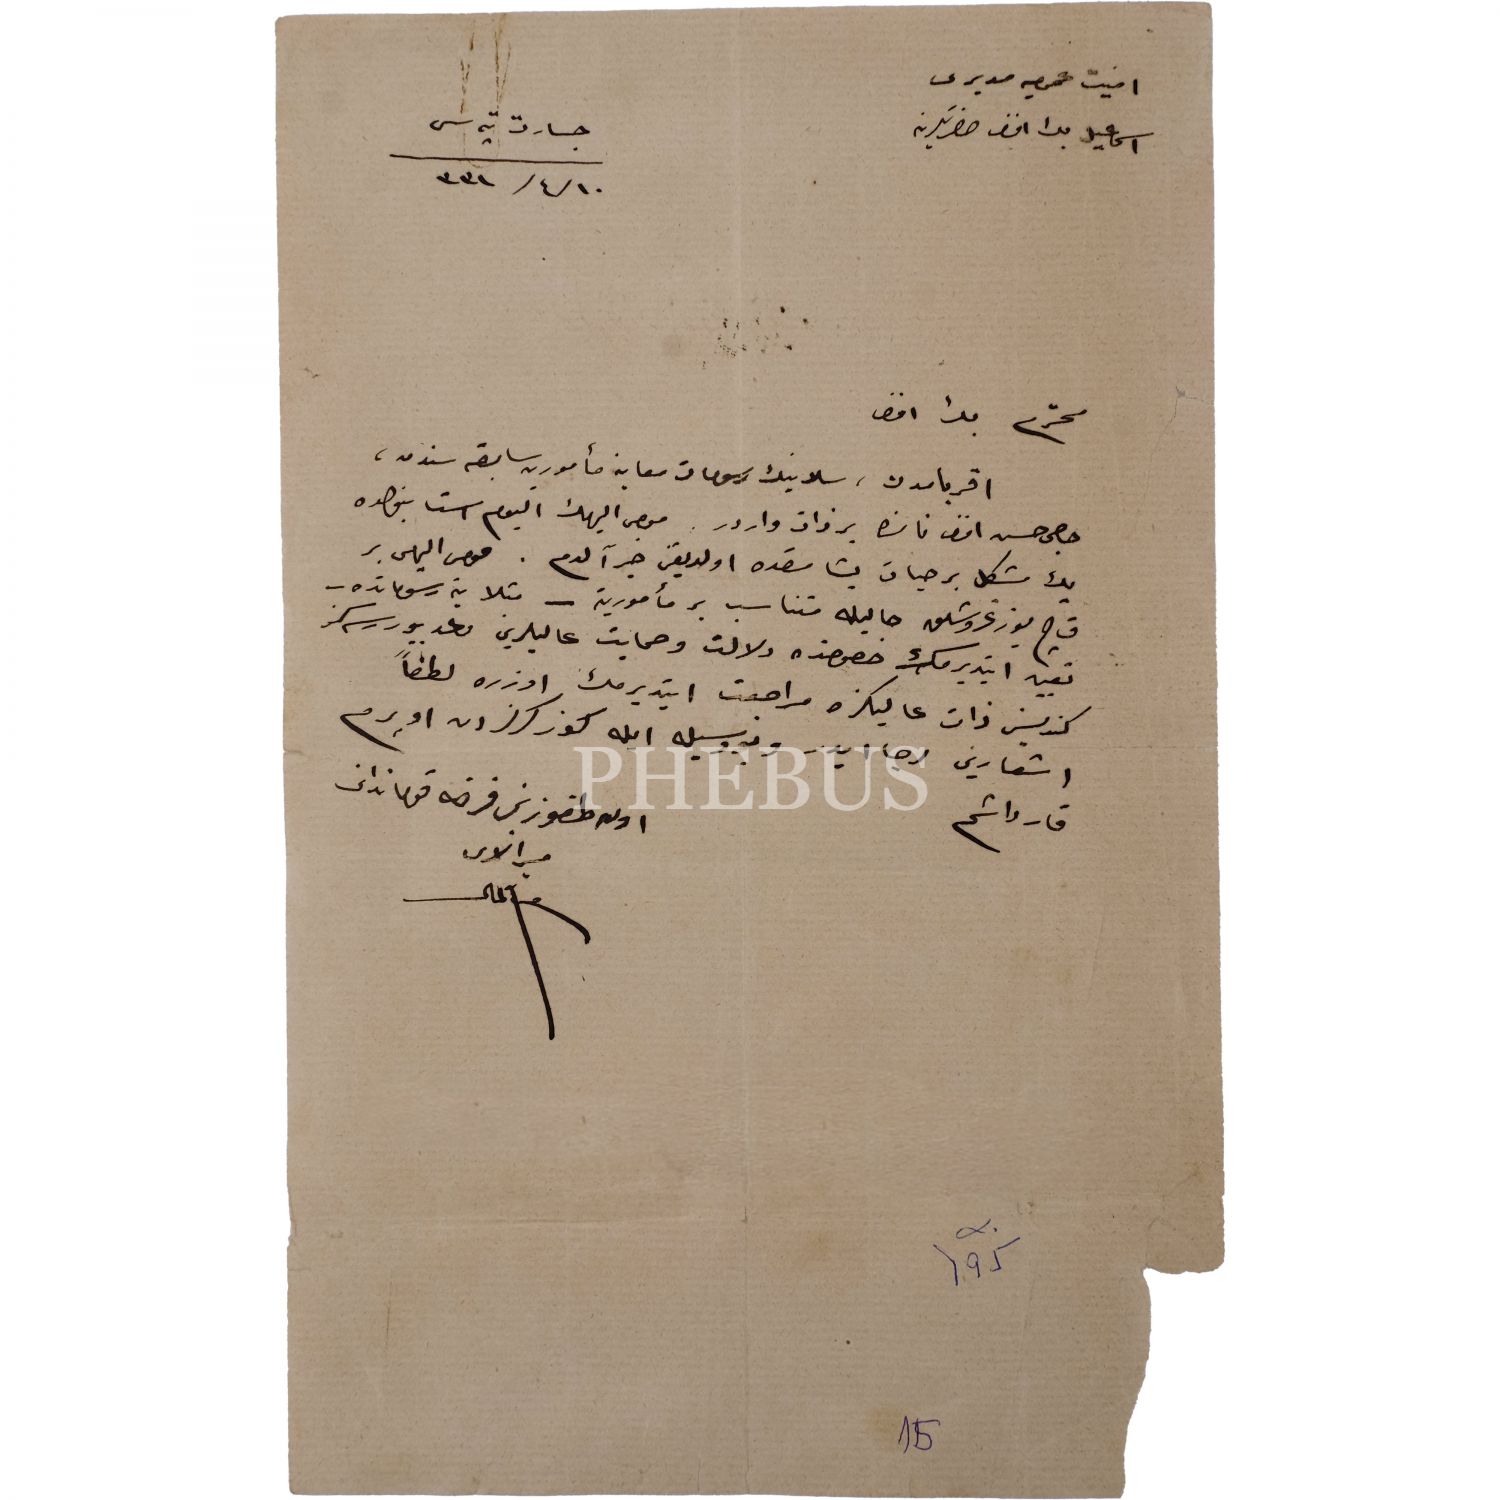 امنیت عمومیه مدیری
اسماعیل بك افندی حضرتلرینه
جسارت تپه سی
١٠/٤/٣٣١
محترم بك افندی
اقربامدن ، سلانیك رسومات معاینه مأمورین سابقه سندن ،
حاجی حسن افندی نامنده بر ذات واردر . مومی الیهك الیوم استانبولده
پك مشکل بر حیات یشامقده اولدیغنی خبر آلدم . مومی الیهی بر
قاچ یوز غروشلق حالیله متناسب بر مأموریته – مثلا ینه رسوماتده –
تعیین ایتدیرمك خصوصنده دلالت و حمایت عالیلرینی وعد بیوررسه کز
کندیسنی ذات عالیکزه مراجعت ایتدیرمك اوزره لطفاً
اشعارینی رجا ایدر و بو وسیله ایله گوزلرکزدن اوپرم
قارداشم
اون طقوزنجی فرقه قوماندانی
میرالای
م. کمال
١٩٥
15
PHEBUS